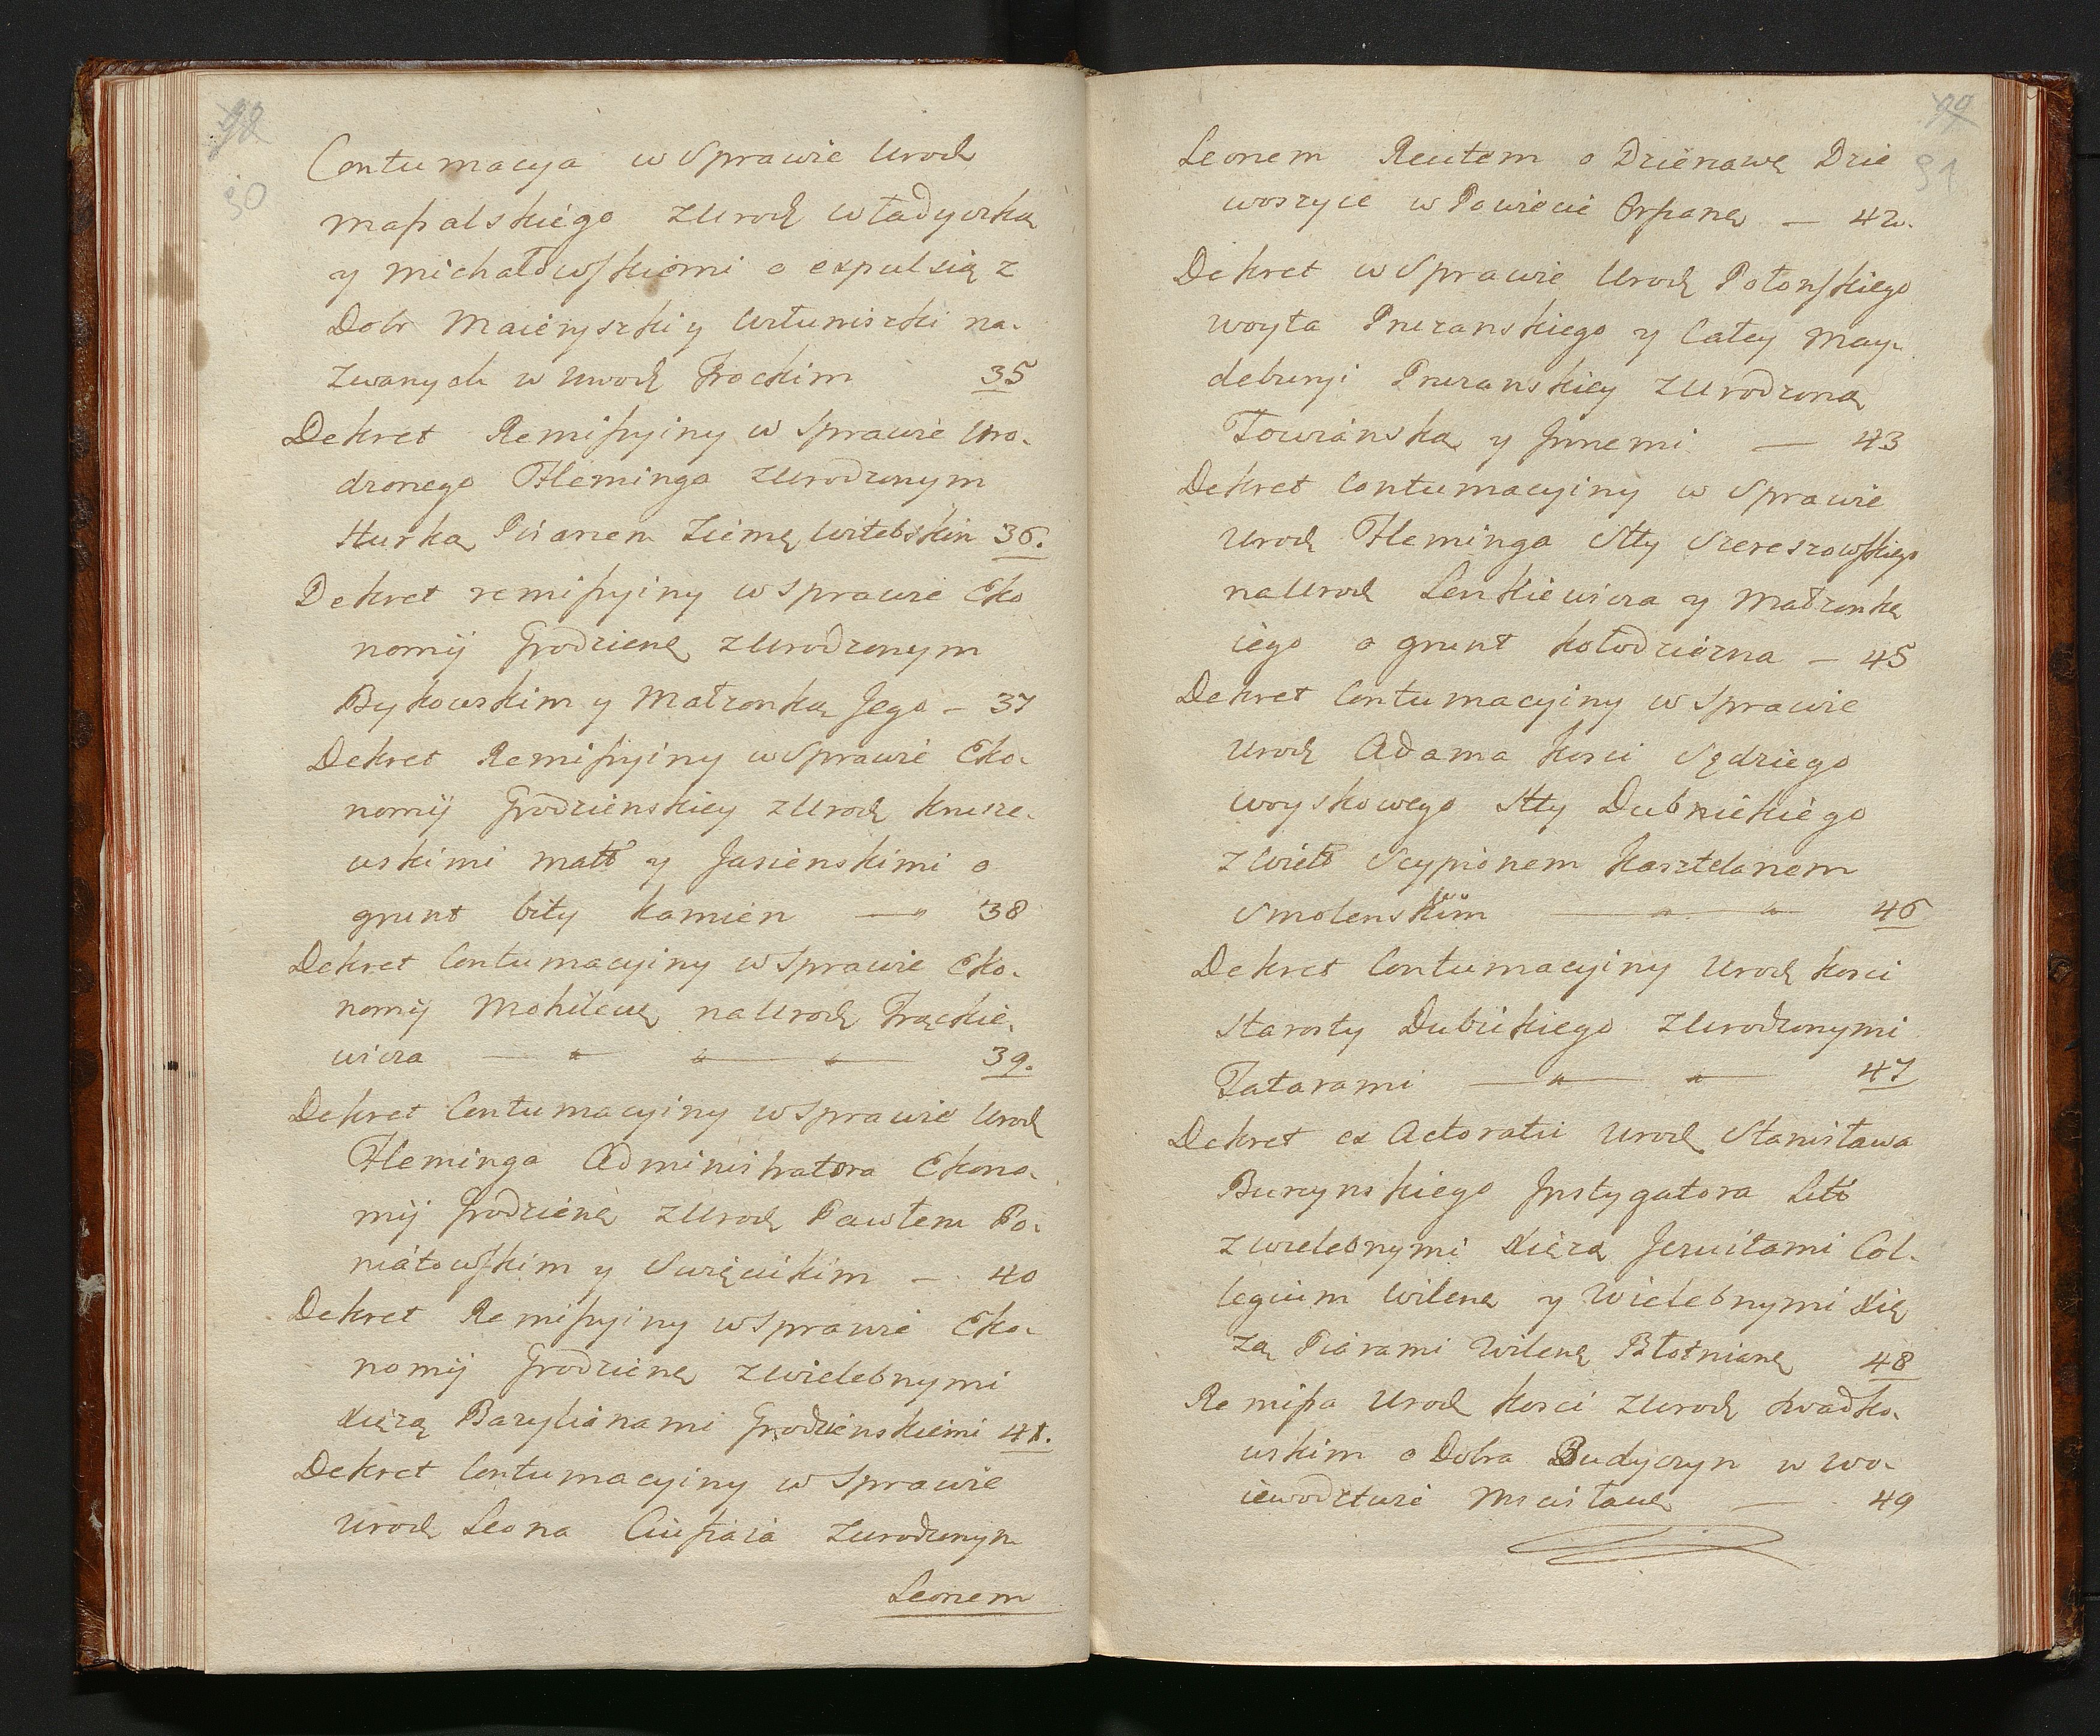 98
90
Contumacya w Sprawie Urodz
Massalskiego z Urodz Władyczką
y Michałowskiemi o expulsią z
Dobr Maieryszki y Wituniszki na-
zwanych w Uwodz Trockim 35
Dekret Remissyiny w Sprawie Uro-
dzonego Fleminga z Urodzonym
Hurką Pisarzem Ziemą Witebskim 36.
Dekret remissyiny w Sprawie Eko
nomij Grodzieną z Urodzonym
Bykowskim y Małzonką Jego – 37
Dekret Remissyiny w Sprawie Eko-
nomij Grodzienskiey z Urodz Krusze-
wskimi małł y Jasienskimi o
grunt biły kamien — " 38
Dekret Contumacyiny w Sprawie Eko-
nomij Mohilewą na Urodz Frąckie-
wicza — " — " — " — 39.
Dekret Contumacyiny w Sprawie Urodz
Fleminga Administratora Ekono-
mij Grodzieną z Urodz Pawłem Po-
niatowskim y Swięcickim – 40
Dekret Remissyiny w Sprawie Eko-
nomij Grodzieną z Wielebnymi
Xięzą Bazylianami Grodzienskiemi 41.
Dekret Contumacyiny w Sprawie
Urodz Leona z Urodzonym
Leonem
99
91
Leonem Reutem o Dzierzawę Dzie
woszyce w Powiecie Orszaną — 42.
Dekret w Sprawie Urodz Połonskiego
woyta Pruzanskiego y Całey May-
deburyi Pruzanskiey z Urodzoną
Towianską y Jnnemi — 43
Dekret Contumacyiny w Sprawie
Urodz Fleminga Stty Szereszowskiego
na Urodz Lenkiewicza y Małzonkę
iego o grunt kołodziezna – 45
Dekret Contumacyiny w Sprawie
Urodz Adama Kosci Sędziego
woyskowego Stty Dubnickiego
z Wielł Scypionem Kasztelanem
Smolenskim — " — " — 46
Dekret Contumacyiny Urodz Kosci
Starosty Dubickiego z Urodzonymi
Tatarami — " — " — 47
Dekret ex Actoratu Urodz Stanisława
Burzynskiego Jnstygatora Litł
z wielebnymi Xięzą Jezuitami Col-
legium Wileną y Wielebnymi Xię
zą Piarami Wileną Błotnianą 48
Remissa Urodz Kosci z Urodz Kwadko-
wskim o Dobra Budyczyn w Wo-
iewodztwie Mscisławą — 49